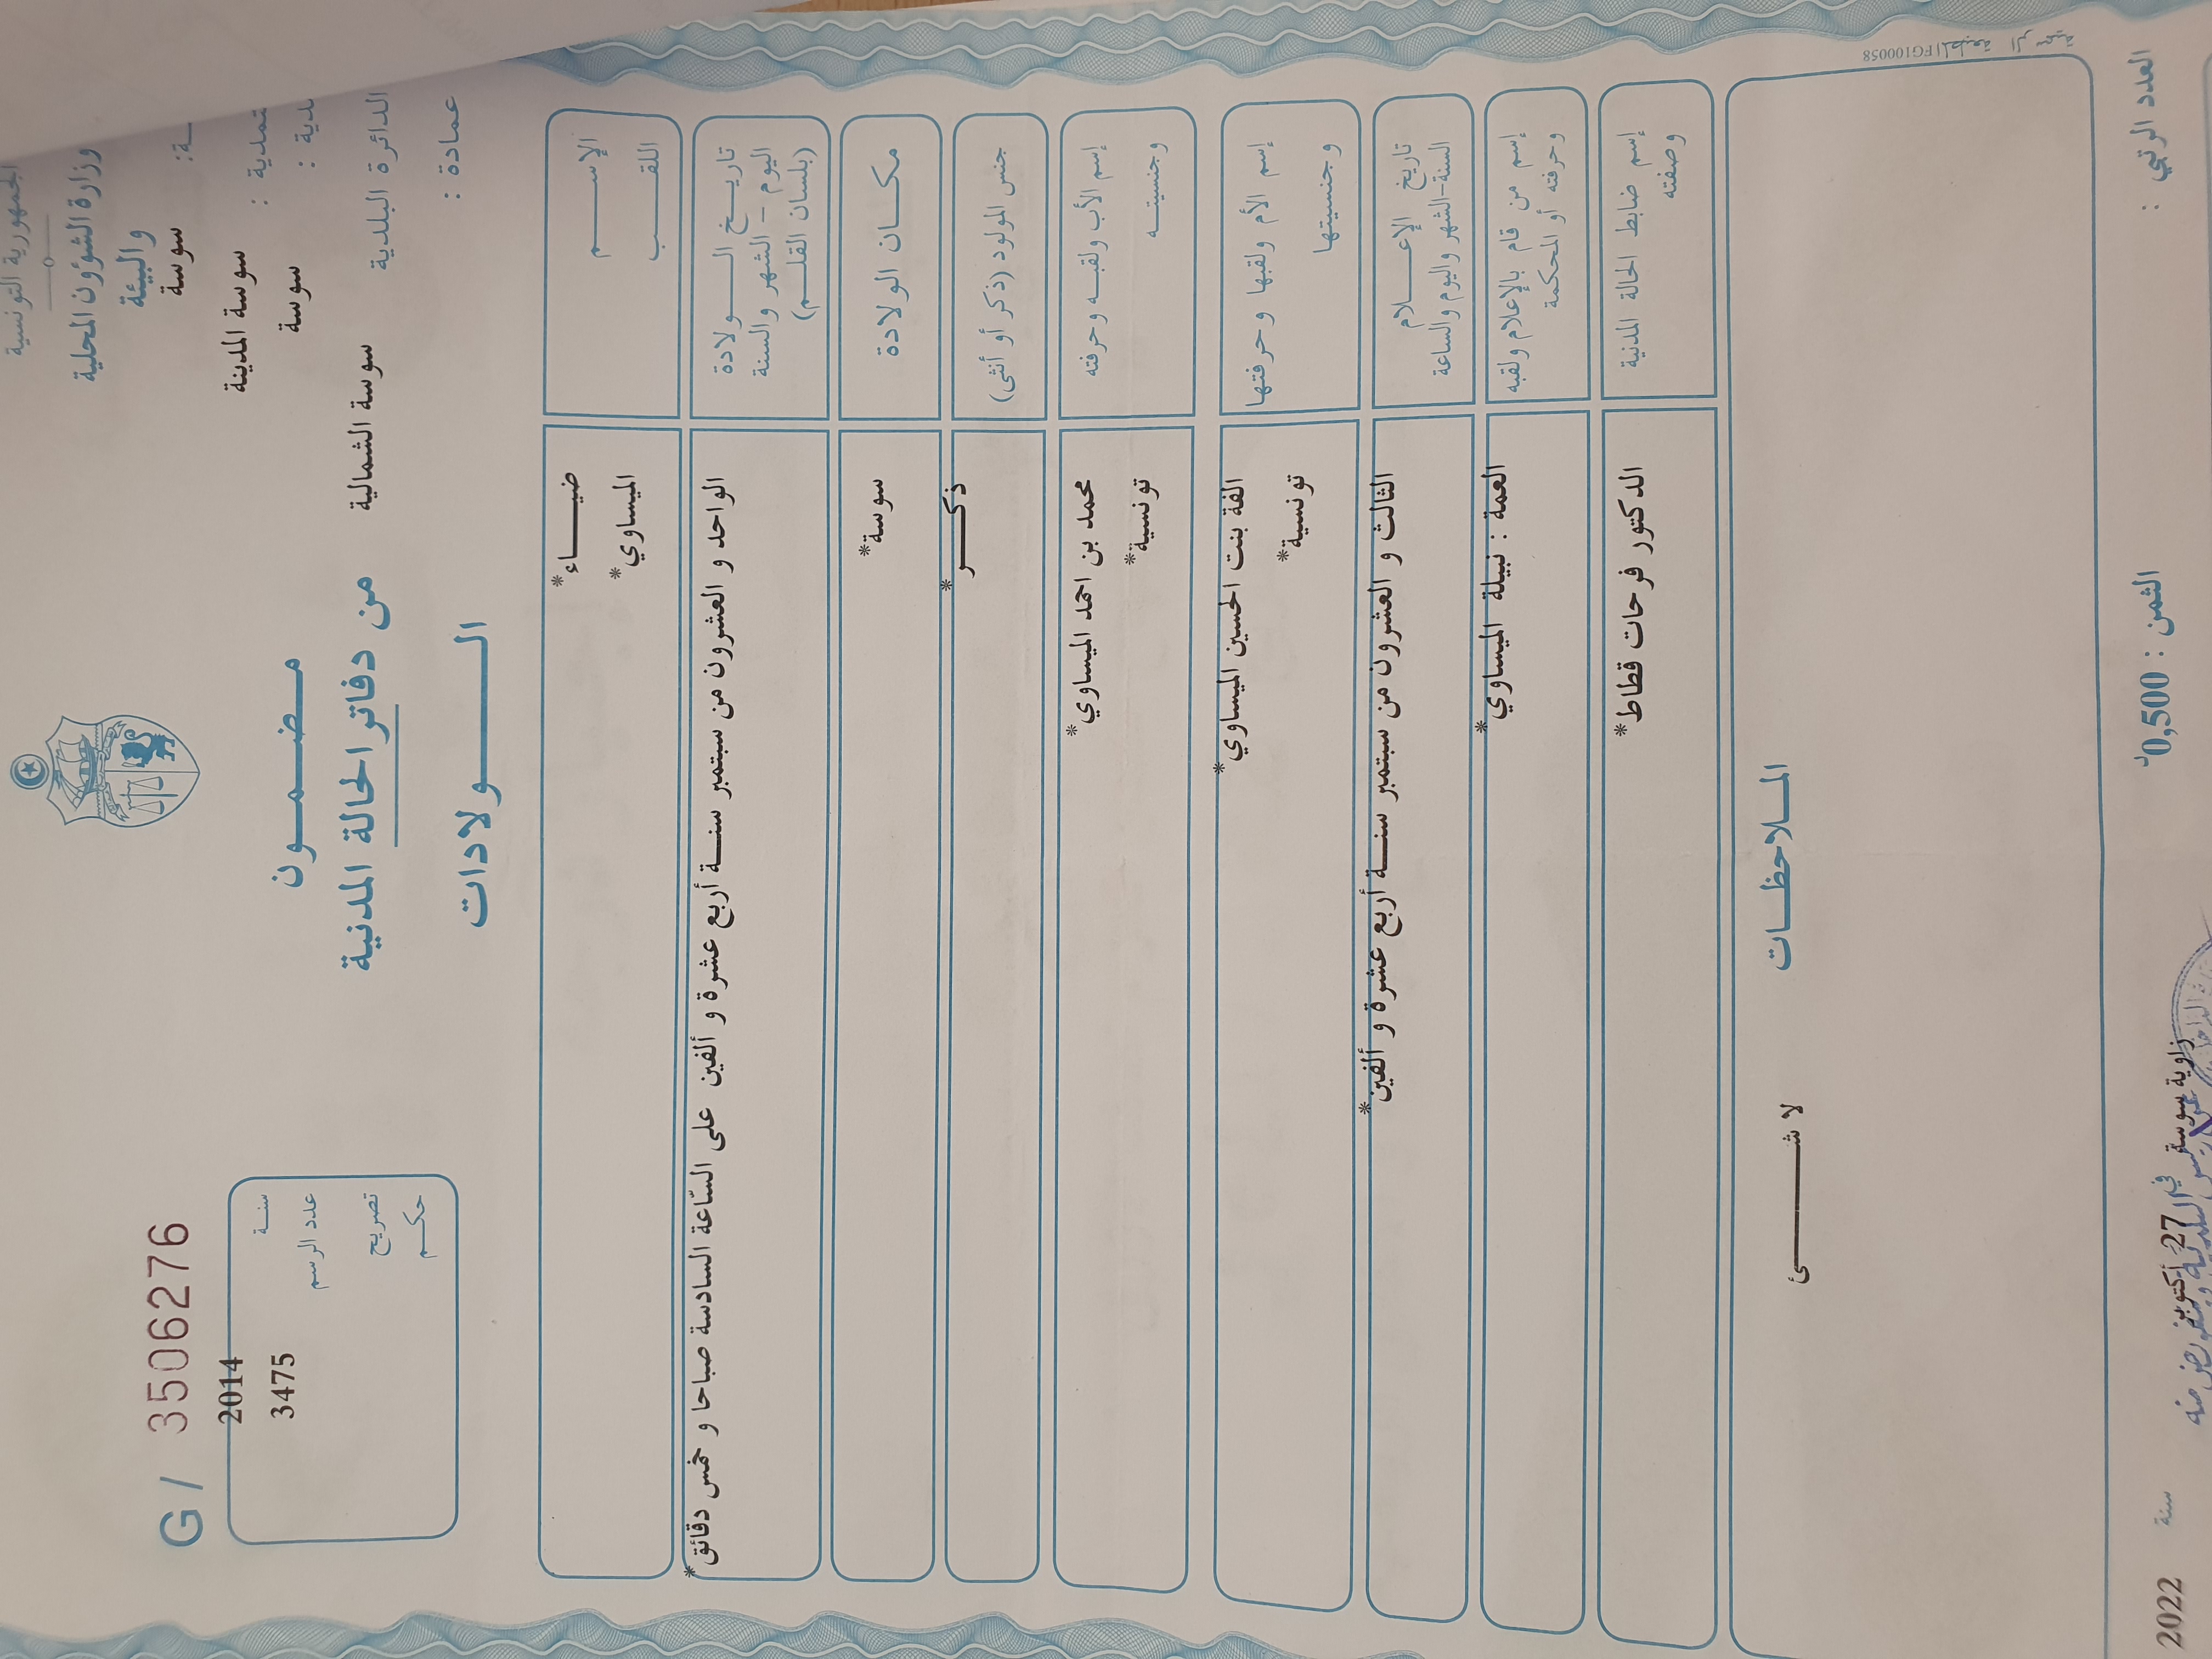 الجمهورية التونسية
وزارة الشؤون المحلية
والبيئة
سوسة
سوسة المدينة
سوسة
الدائرة البلدية سوسة الشمالية
عمادة :
G / 3506276
سنة 2014
عدد الرسم 3475
تصريح
حكم
مضمون
من دفاتر الحالة المدنية
الولادات
الإسم ضياء*
اللقب الميساوي*
تاريخ الولادة
اليوم - الشهر والسنة
(بلسان القلم)
الواحد و العشرون من سبتمبر سنة أربع عشرة و ألفين على السّاعة السادسة صباحا و خمس دقائق*
مكان الولادة سوسة*
جنس المولود (ذكر أو أنثى) ذكر*
إسم الأب ولقبه وحرفته محمد بن احمد الميساوي*
وجنسيته تونسية*
إسم الأم ولقبها وحرفتها الفة بنت الحسين الميساوي*
وجنسيتها تونسية*
تاريخ الإعلام
السنة-الشهر واليوم والساعة
الثالث و العشرون من سبتمبر سنة أربع عشرة و ألفين*
إسم من قام بالإعلام ولقبه
وحرفته أو المحكمة
العمة : نبيلة الميساوي*
إسم ضابط الحالة المدنية
وصفته
الدكتور فرحات قطاط*
الملاحظات
لا شئ
FG100058 المطبعة الرسمية
العدد الرتبي :
الثمن : 0,500د
زاوية سوسة في 27 أكتوبر سنة 2022